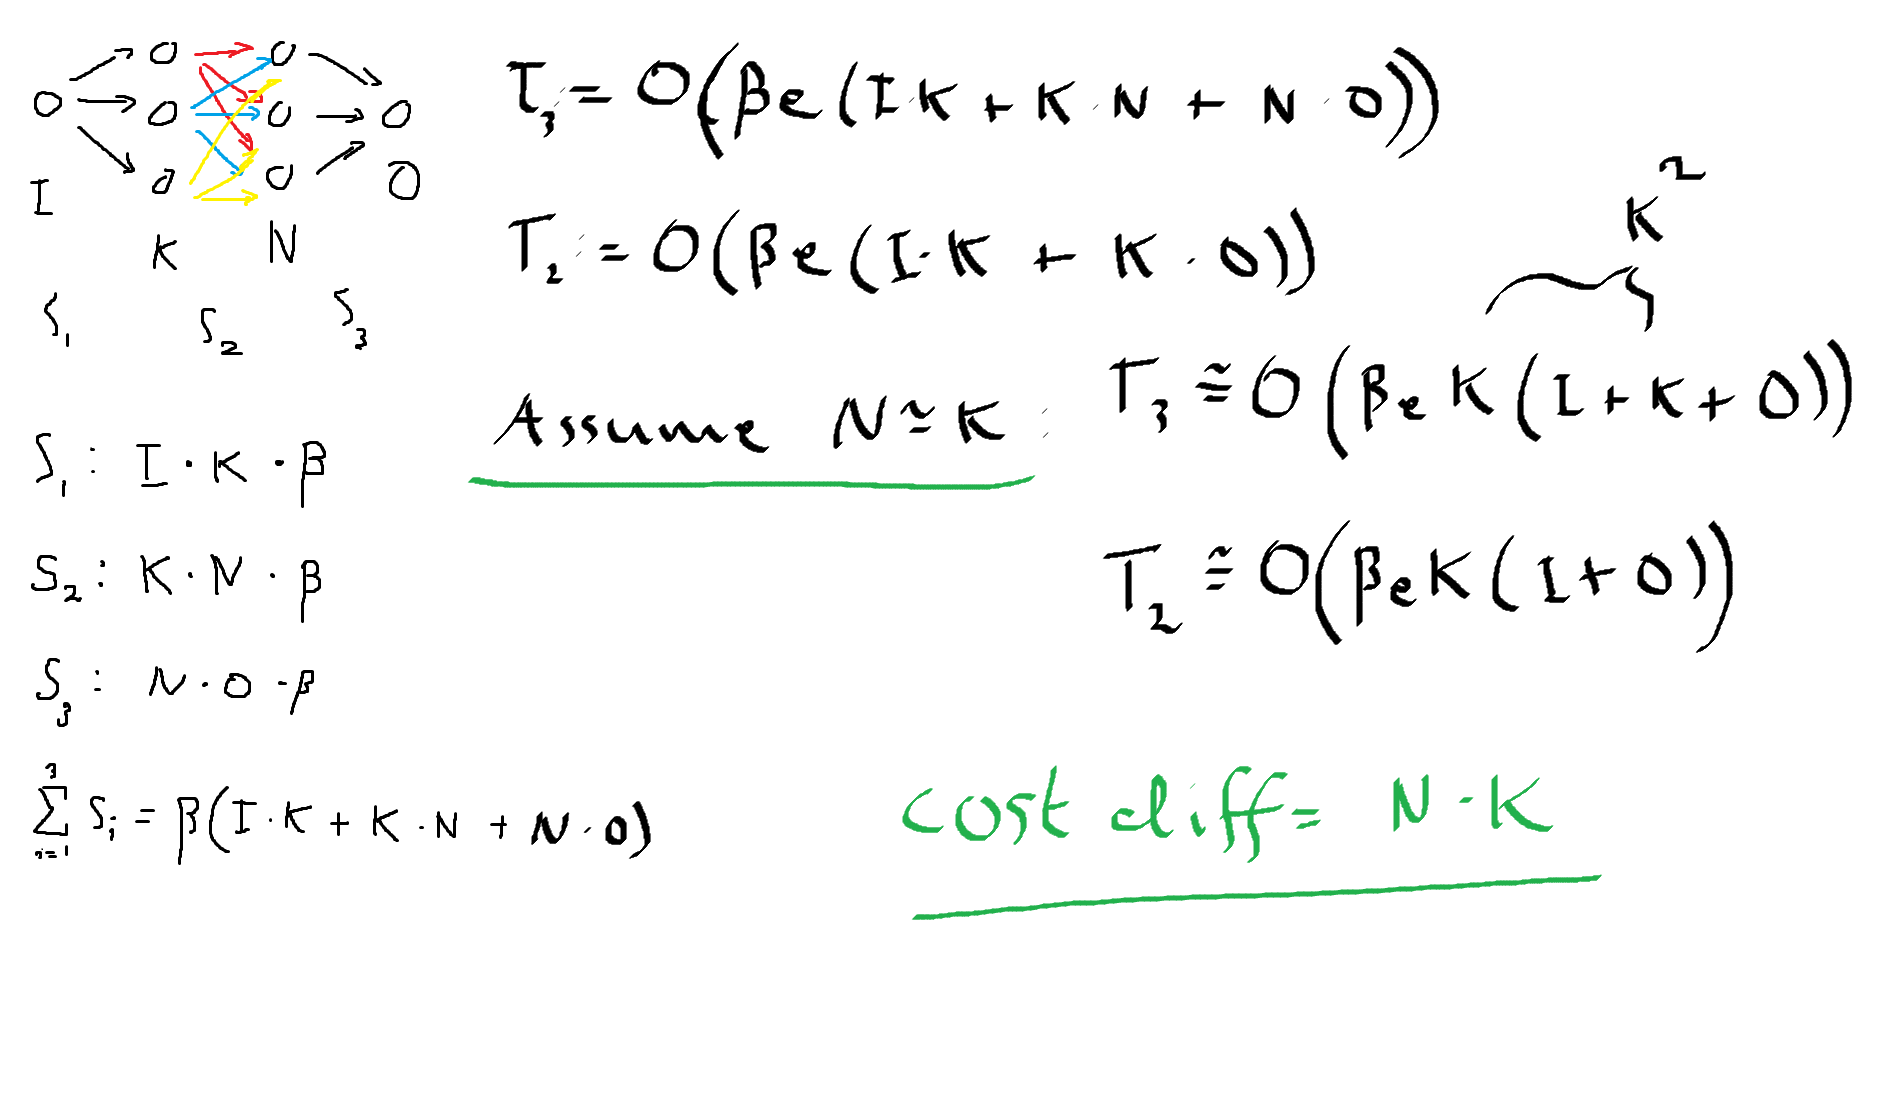 I
K N
O
S₁ S₂ S₃
S₁ : I · K · β
S₂ : K · N · β
S₃ : N · O · β
∑ᵢ₌₁³ Sᵢ = β(I · K + K · N + N · O)
T₃ = O(βe(I·K + K · N + N · O))
T₂ = O(βe(I·K + K · O))
Assume N ≃ K :
K²
T₃ ≅ O(βeK(I + K + O))
T₂ ≅ O(βeK(I + O))
cost diff = N · K